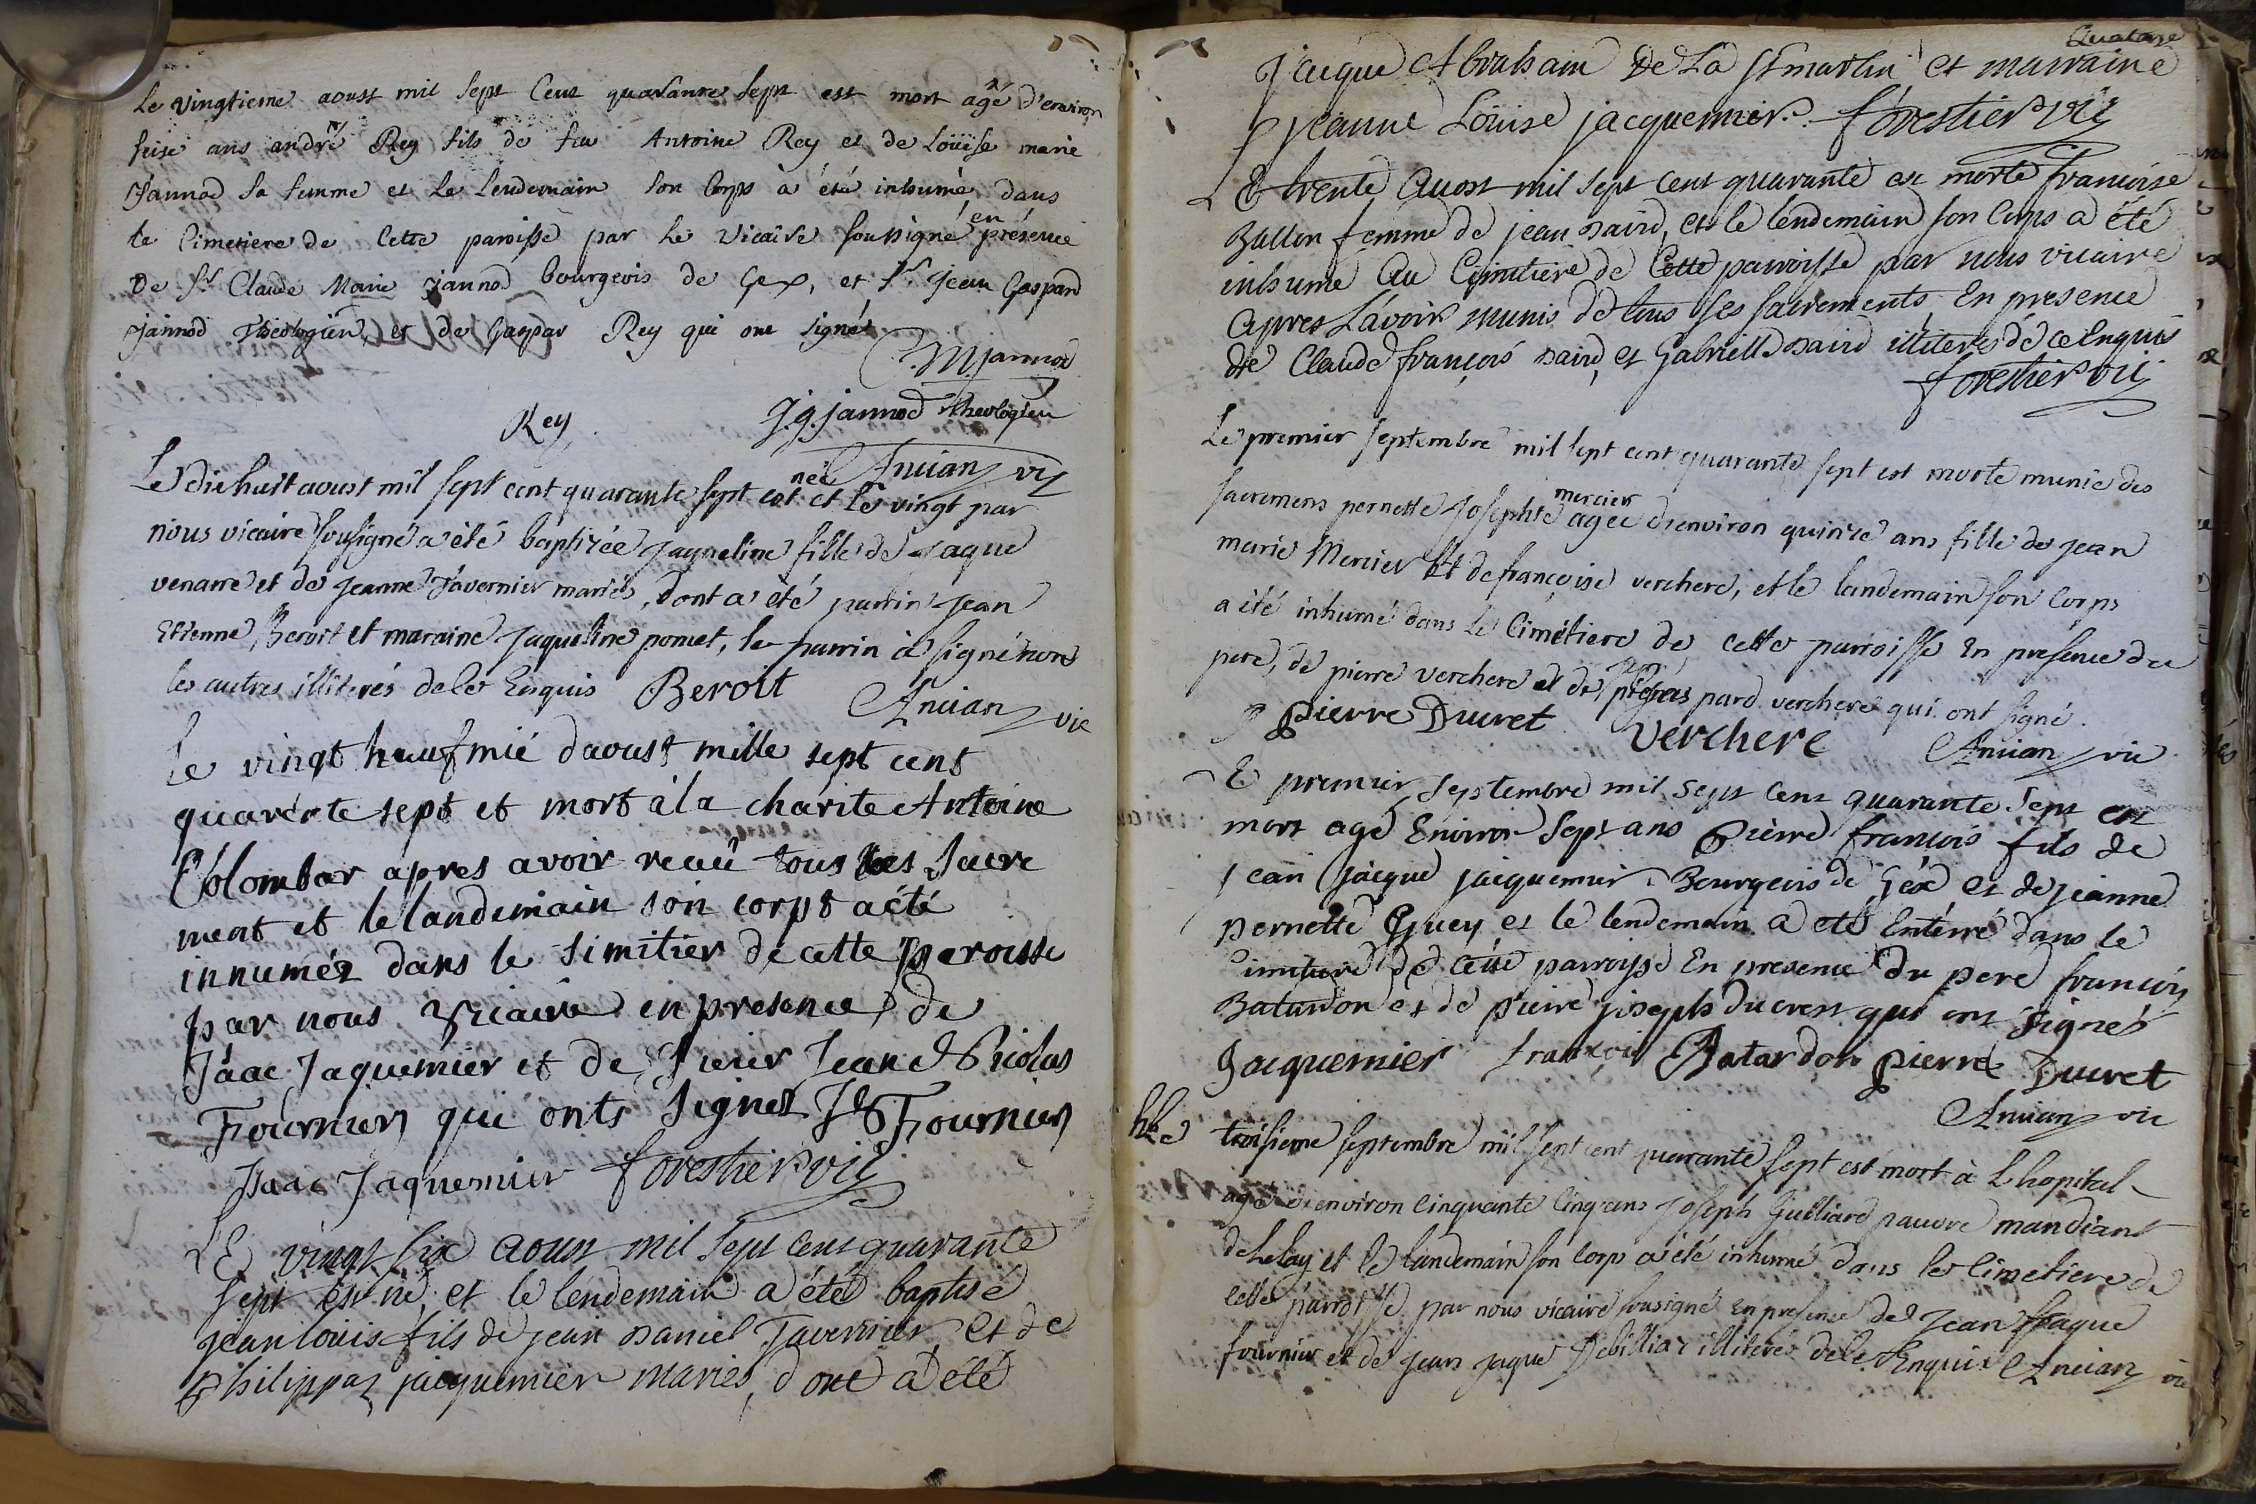 Le vingtieme aoust mil sept cent quaranre sept est mort agé d'environ
seise ans andré Rey fils de feu Antoine Rey et de Loüise marie
Jannod sa femme et le lendemain son corps à été inhumé dans
le Cimetiere de cette paroisse par le Vicaire soussigné en présence
De Sr Claude Marie jannod bourgeois de Gex, et Sr jean Gaspard
jannod Théologien, et de Gaspar Rey qui ont signés
CMjannod
Rey J.g.jannod theologien
Ancian vic
Le dixhuit aoust mil sept cent quarante sept est neë et le vingt par
nous vicaire sousigné a été baptizée Jaqueline fille de Jaque
venarre et de Jeanne Tavernier mariés, dont a été parrin Jean
Etienne Beroit et maraine Jaqueline pomet, le parrin à signé non
les autres illiterés de ce Enquis Beroit Ancian vic
le vingt daoust mille sept cent
quarente sept et mort à la charite Antoine
Colombar apres avoir recuû tous les sacre
ment et le landemain son corps a été
innuméz dans le simitier de cette peroisse
par nous vicaire en presence de
Isaac Jaquemier et de sieur Jean Nicolas
Fournier qui onts signez J N Fournier
Isaac Jaquemier forestier vic
LE vingt six aoust mil sept cent quarante
sept est né et le lendemain a été baptisé
jean louis fils de jean Daniel Tavernier et de
philippaz jacquemier mariés, dont a été
Quatorze
Jacque Abraham De La St martin et marraine
jeanne Loüise jacquemier. forestier vic
LE trente Auost mil sept cent quarante est morte francoise
Ballon femme de jean David, et le lendemain son corps a été
inhumé au Cimitiere de Cette parroisse par nous vicaire
apres L'avoir munis de tous ses sacrements, En presence
de Claude françois David, et Gabriell David illiteres de ce Enquis
forestier vic
Le premier septembre mil sept cent quarante sept est morte munie des
sacremens pernette Josephte mercier agée d'environ quinze ans fille de Jean
marie Mercier Et de françoise verchere, et le landemain son corps
a été inhumé dans le Cimétiere de cette parroisse En présence du
pere, de pierre verchere et de pard verchere qui ont signé.
Pierre Ducret Verchere Ancian vic
LE premier septembre mil sept cent quarante sept est
mort agé Environ sept ans Pierre francois fils de
jean jacque jacquemier Bourgeois de Gex et de jeanne
pernette Gguey et le lendemain a eté Enterré dans le
Cimitiere de cette parroisse En presence du pere francois
Batardon et de Pierre joseph Ducret qui ont signés
Jacquemier francois Batardon pierre Ducret
Ancian vic
Le troisieme septembre mil sept cent quarante sept est mort à L'hopital
agé d'environ cinquante Cinq ans Joseph Gulliard pauvre mandiant
de et le landemain son corp a été inhumé dans le Cimetiere de
cette parroisse par nous vicaire sousigné En présence de Jean Jaque
fournier et de Jean Jaque Debilliaz illiterés de ce Enquis Ancian vic